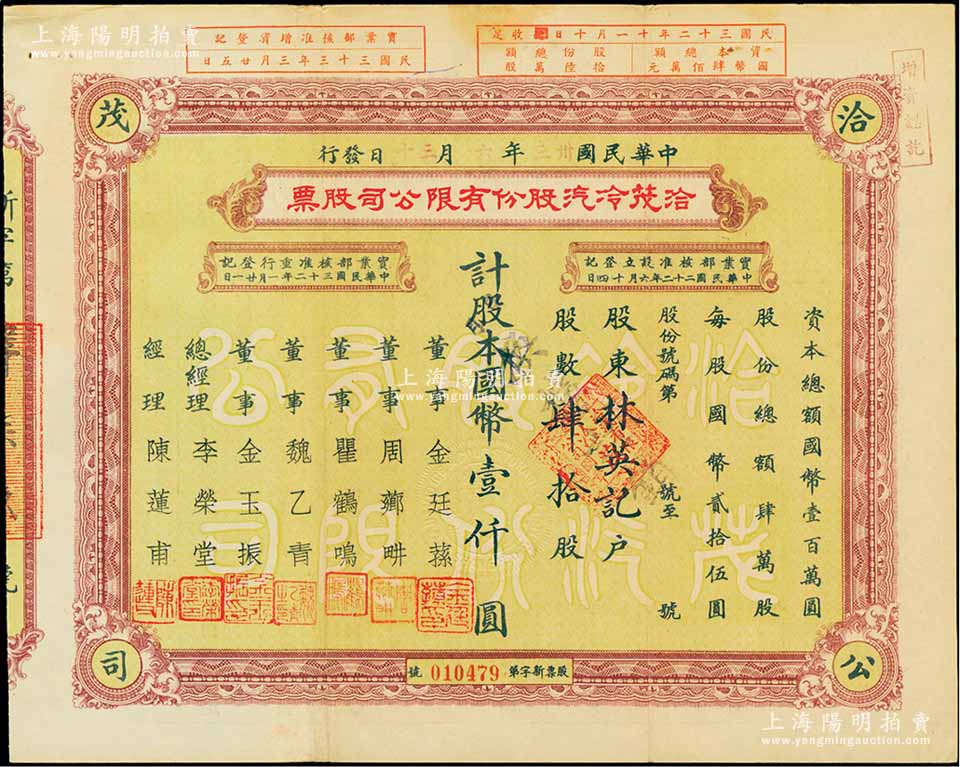 上海陽明拍賣
www.yangmingauction.com
民國三十二年十一月十日收足
資本總額
國幣肆佰萬元
股份總額
拾陸萬股
實業部核准增資登記
民國三十三年三月廿五日
增資訖
洽
茂
公
司
中華民國卅三年六月三十日發行
洽茂冷汽股份有限公司股票
實業部核准設立登記
中華民國二十二年六月十四日
實業部核准重行登記
中華民國三十二年一月廿一日
資本總額國幣壹百萬圓
股份總額肆萬股
每股國幣貳拾伍圓
股份號碼第 號至 號
股東林英記户
股數肆拾股
計股本國幣壹仟圓
董事金廷蓀
董事周薌畊
董事瞿鶴鳴
董事魏乙青
董事金玉振
總經理李榮堂
經理陳蓮甫
洽茂冷汽股份有限公司
股票新字第 010479 號
上海陽明拍賣
www.yangmingauction.com
上海陽明拍賣
www.yangmingauction.com